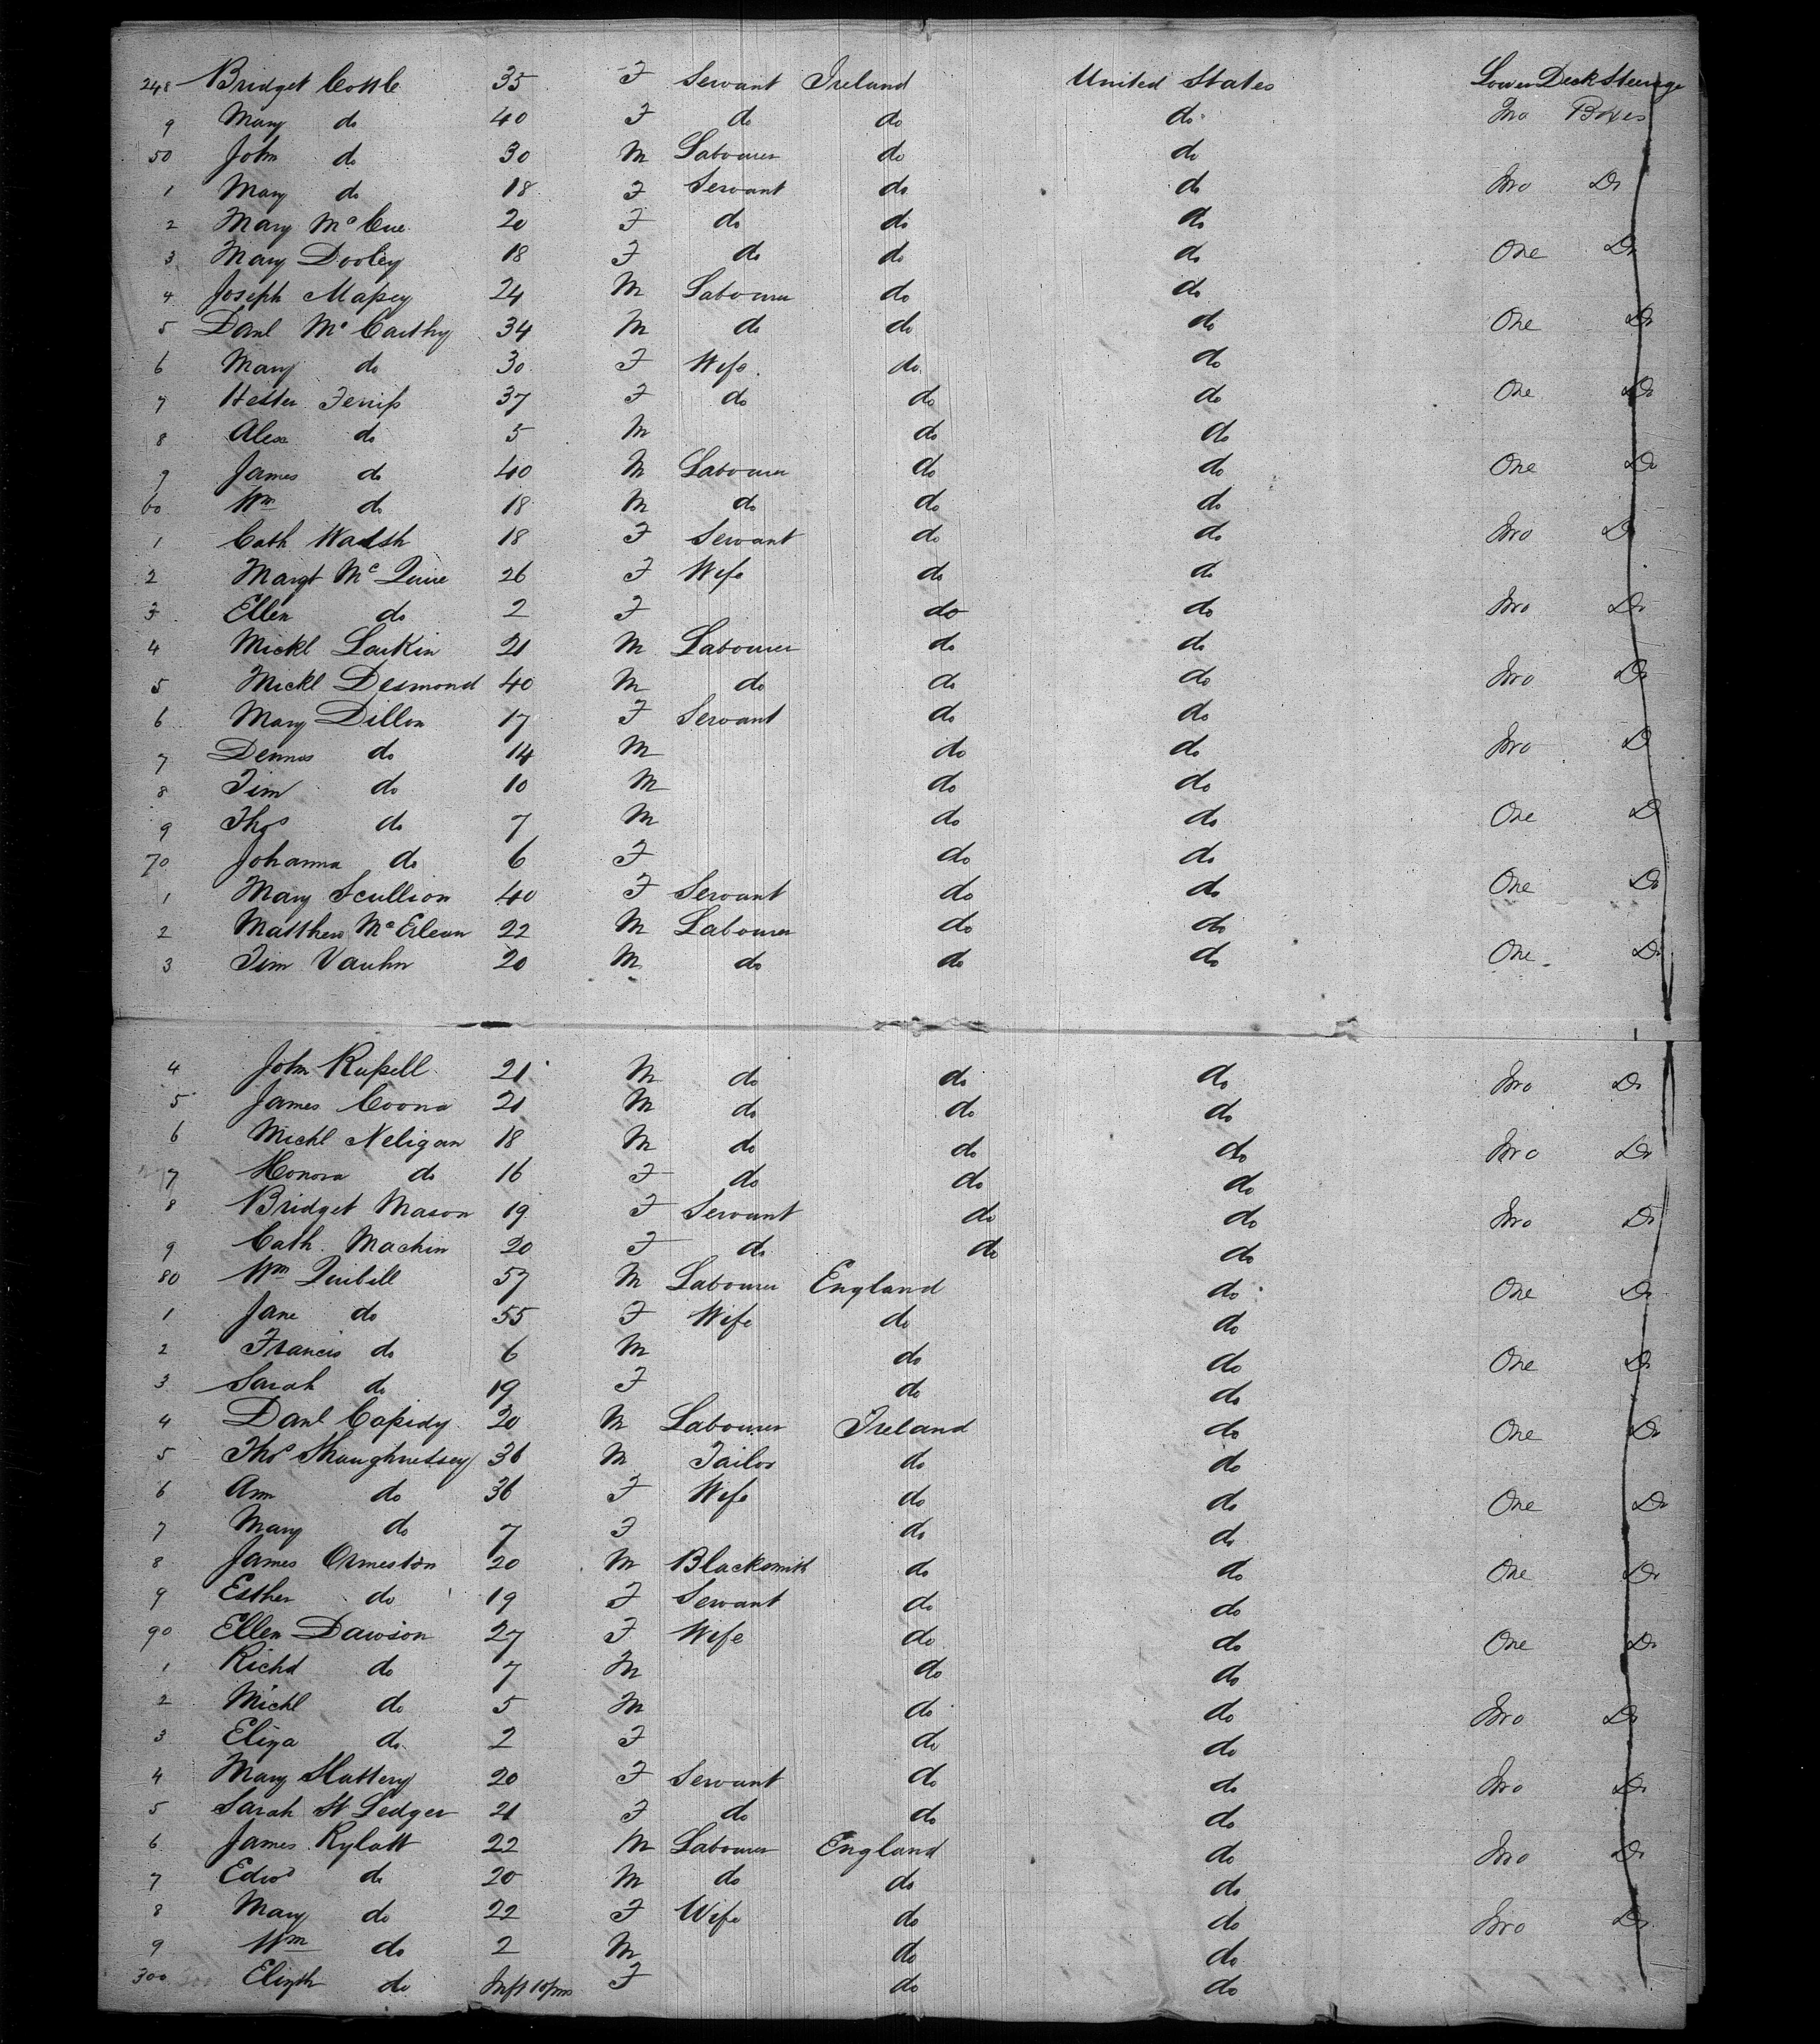 248 Bridget Cottle 35 F Servant Ireland United States Lower Deck Steerage
9 Mary do 40 F do do do Two Boxes
50 John do 30 M Labourer do do
1 Mary do 18 F Servant do do Two Do
2 Mary McCue 20 F do do do
3 Mary Dooley 18 F do do do One Do
4 Joseph Massey 24 M Labourer do do
5 Danl McCarthy 34 M do do do One Do
6 Mary do 30 F Wife do do
7 Hester Ferriss 37 F do do do One Do
8 Alex do 5 M do do
9 James do 40 M Labourer do do One Do
60 Wm do 18 M do do do
1 Cath Walsh 18 F Servant do do Two Do
2 Margt McQuire 26 F Wife do do
3 Ellen do 2 F do do Two Do
4 Mickl Larkin 21 M Labourer do do
5 Mickl Desmond 40 M do do do Two Do
6 Mary Dillon 17 F Servant do do
7 Dennis do 14 M do do Two Do
8 Tim do 10 M do do
9 Thos do 7 M do do One Do
70 Johanna do 6 F do do
1 Mary Scullion 40 F Servant do do One Do
2 Matthew McErlean 22 M Labourer do do
3 Tim Vauhn 20 M do do do One Do
4 John Russell 21 M do do do Two Do
5 James Coona 21 M do do do
6 Michl Neligan 18 M do do do Two Do
7 Honora do 16 F do do do
8 Bridget Mason 19 F Servant do do Two Do
9 Cath. Machin 20 F do do do
80 Wm Quibill 57 M Labourer England do One Do
1 Jane do 55 F Wife do do
2 Francis do 6 M do do One Do
3 Sarah do 19 F do do
4 Danl Cassidy 20 M Labourer Ireland do One Do
5 Thos Shaughnessey 36 M Tailor do do
6 Ann do 36 F Wife do do One Do
7 Mary do 7 F do do
8 James Ormeston 20 M Blacksmith do do One Do
9 Esther do 19 F Servant do do
90 Ellen Dawson 27 F Wife do do One Do
1 Richd do 7 M do do
2 Michl do 5 M do do Two Do
3 Eliza do 2 F do do
4 Mary Slattery 20 F Servant do do Two Do
5 Sarah St Ledger 21 F do do do
6 James Rylatt 22 M Labourer England do Two Do
7 Edwd do 20 M do do do
8 Mary do 22 F Wife do do Two Do
9 Wm do 2 M do do
300 Elizth do Inft 10/ms F do do